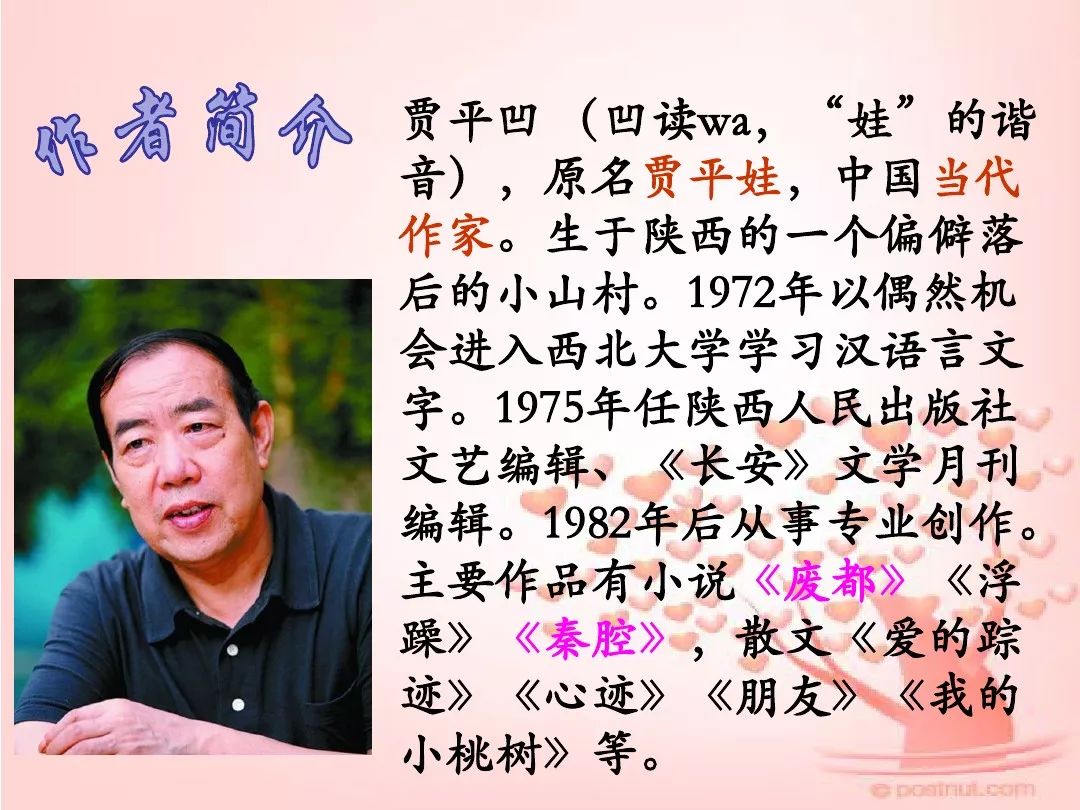 作者简介
贾平凹 （凹读wa，“娃”的谐
音），原名贾平娃，中国当代
作家。生于陕西的一个偏僻落
后的小山村。1972年以偶然机
会进入西北大学学习汉语言文
字。1975年任陕西人民出版社
文艺编辑、《长安》文学月刊
编辑。1982年后从事专业创作。
主要作品有小说《废都》《浮
躁》《秦腔》，散文《爱的踪
迹》《心迹》《朋友》《我的
小桃树》等。
© postnut.com